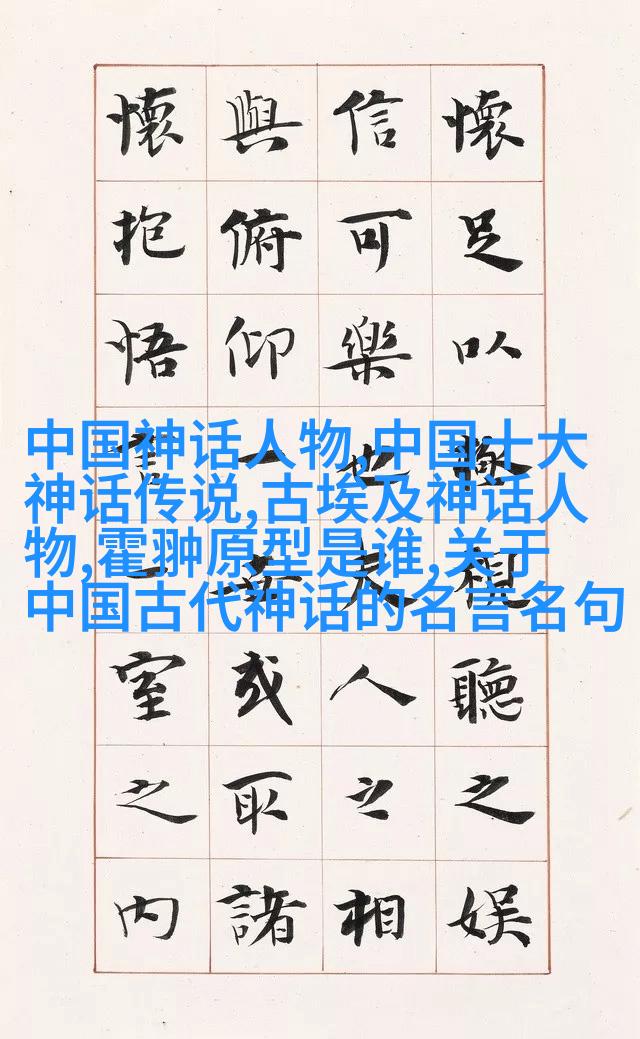 懷足以極視聽之娛
信可樂也夫人之相
與俯仰一世或取諸
懷抱悟言一室之內
中国神话人物,中国十大
神话传说,古埃及神话人
物,霍翀原型是谁,关于
中国古代神话的名言名句